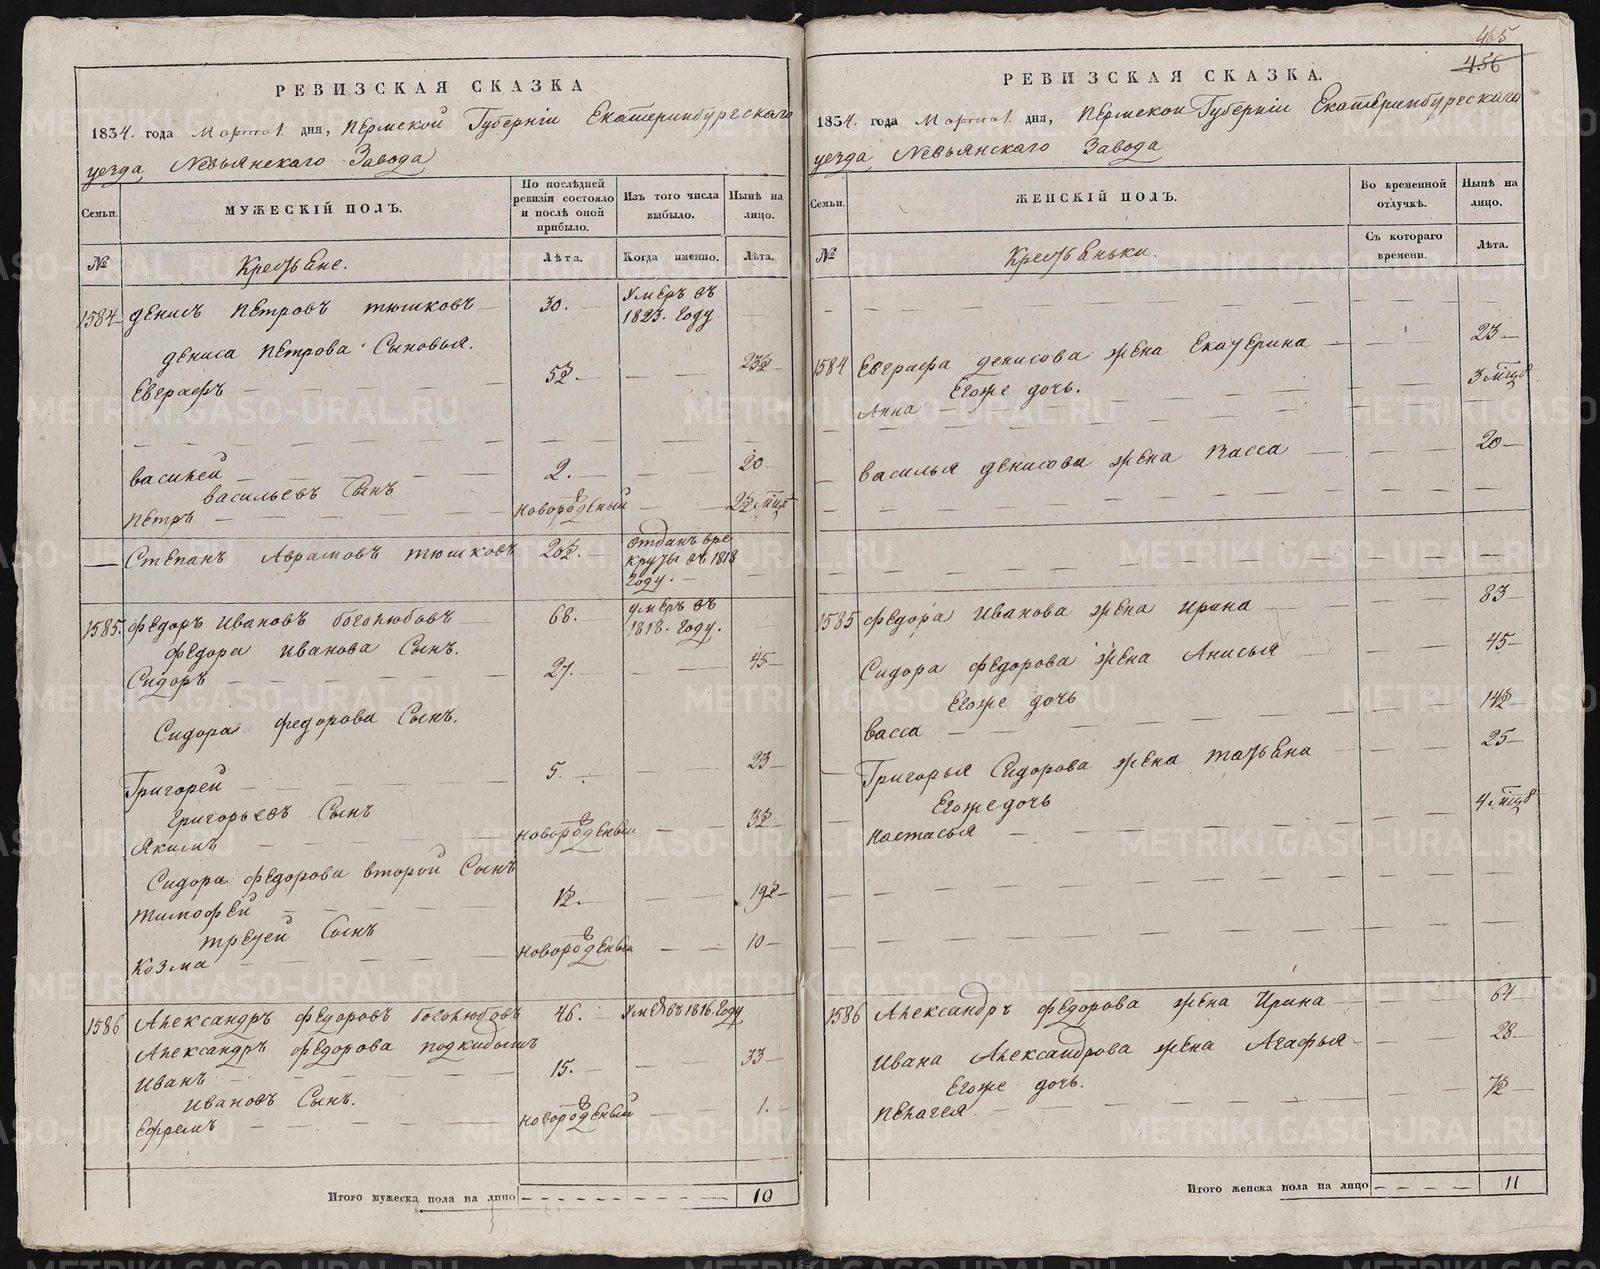 РЕВИЗСКАЯ СКАЗКА
1834. года Марта 1. дня, Пермской Губерніи Екатеринбургскаго
уезда Невьянскаго Завода
Семьи.
МУЖЕСКІЙ ПОЛЪ.
По послѣдней ревизіи состояло и послѣ оной прибыло.
Изъ того числа выбыло.
Нынѣ на лицо.
№
Крестьяне.
Лѣта.
Когда именно.
Лѣта.
1584 Денисъ Петровъ тюшковъ 30. Умеръ въ 1823. Году
Дениса Петрова Сыновья.
Евграфъ
Василей 2. 20
Васильевъ Сынъ
Петръ новорожденый
Степанъ Аврамовъ тюшковъ отданъ в рекруты въ 1818 Году.
1585. Федоръ Ивановъ боголюбовъ 68. умеръ въ 1818. Году.
Федора Иванова Сынъ.
Сидоръ 27. 45
Сидора Федорова Сынъ.
Григорей 5. 23
Григорьевъ Сынъ
Якимъ новорожденый
Сидора Федорова второй Сынъ
тимофей
третей Сынъ
Козма новорожденый 10
1586 Александръ Федоровъ боголюбовъ 46. Умеръ въ 1816. Году
Александръ Федорова подкидышъ
Иванъ 15. 33
Ивановъ Сынъ.
Ефремъ новорожденый 1.
Итого мужеска пола на лицо 10
465
456
РЕВИЗСКАЯ СКАЗКА.
1834. года Марта 1. дня, Пермской Губерніи Екатеринбургскаго
уезда Невьянскаго Завода
Семьи.
ЖЕНСКІЙ ПОЛЪ.
Во временной отлучкѣ.
Нынѣ на лицо.
№
Крестьянки.
Съ котораго времени.
Лѣта.
1584 Евграфа Денисова жена Екатерина 23
Егоже дочь.
Анна 3 мѣсц
Василья Денисова жена Васса 20
1585 Федора Иванова жена Ирина 83
Сидора Федорова жена Анисья 45
Егоже дочь
Васса
Григорья Сидорова жена татьяна 25
Егоже дочь
Настасья 4. мѣсц
1586 Александръ Федорова жена Ирина 64
Ивана Александрова жена Агафья 28
Егоже дочь.
Пелагея
Итого женска пола на лицо 11
METRIKI.GASO-URAL.RU